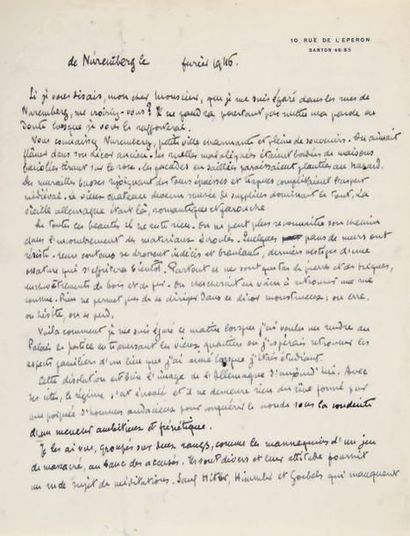 10, RUE DE L'EPERON
DANTON 46-85
de Nuremberg le février 1946.
Si je vous disais, mon cher Monsieur, que je me suis égaré dans les rues de
Nuremberg, me croiriez-vous ? Il ne faudra pourtant pas mettre ma parole en
doute lorsque je vous le rapporterai.
Vous connaissiez Nuremberg, petite ville charmante et pleine de souvenirs. On aimait
flâner dans son décor ancien. Les ruelles mal alignées étaient bordées de maisons
bariolées tirant sur le rose. Les façades en saillies paraissaient plantées au hasard.
Des murailles basses rejoignant des tours épaisses et trapues complétaient l'aspect
médiéval. Le vieux château devenu musée de supplices dominant le tout. La
vieille Allemagne était là, romantique et farouche
De toutes ces beautés il ne reste rien. On ne peut plus reconnaître son chemin
dans l'amoncellement des matériaux écroulés. Quelques pans de murs ont
résisté. Leurs contours se dressent indécis et branlants, derniers vestiges d'une
ossature qui s'effritera bientôt. Partout ce ne sont que tas de pierres et de briques,
enchevêtrements de bois et de fer. On chercherait en vain à retrouver une rue
connue. Rien ne permet plus de se diriger dans ce décor monstrueux : on erre,
on hésite, on se perd.
Voilà comment je me suis égaré ce matin lorsque j'ai voulu me rendre au
Palais de Justice en traversant les vieux quartiers où j'espérais retrouver les
aspects familiers d'un lieu que j'ai aimé lorsque j'étais étudiant.
Cette désolation est bien l'image de l'Allemagne d'aujourd'hui. Avec
ses villes, le régime s'est écroulé et il ne demeure rien du rêve formé par
une poignée d'hommes audacieux pour conquérir le monde sous la conduite
d'un meneur ambitieux et frénétique.
Je les ai vus, groupés sur deux rangs, comme les mannequins d'un jeu
de massacre, au banc des accusés. Ils sont divers et leur attitude fournit
un rude sujet de méditations. Sauf Hitler, Himmler et Goebels qui manquent